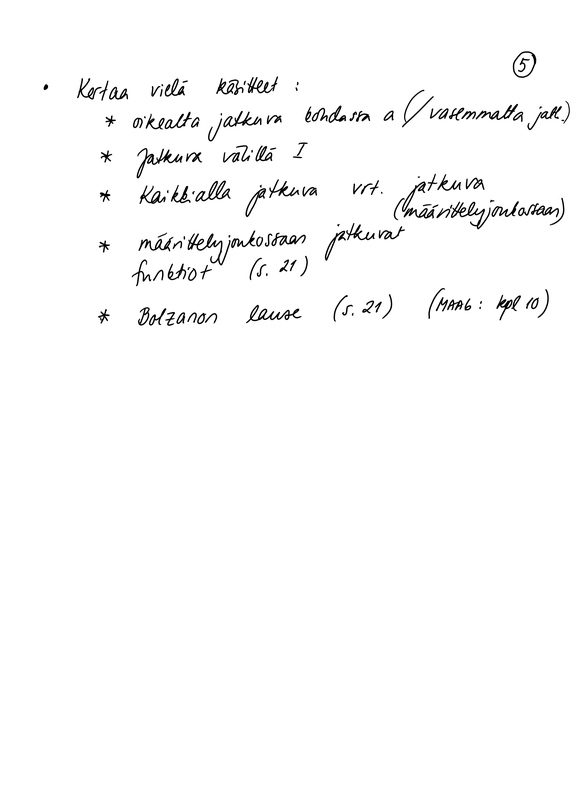 5
• Kertaa vielä käsitteet :
* oikealta jatkuva kohdassa a (/vasemmalta jatk.)
* Jatkuva välillä I
* Kaikkialla jatkuva vrt. jatkuva
(määrittelyjoukossaan)
* määrittelyjoukossaan jatkuvat
funktiot (s. 21)
* Bolzanon lause (s. 21) (MAA6: kpl 10)